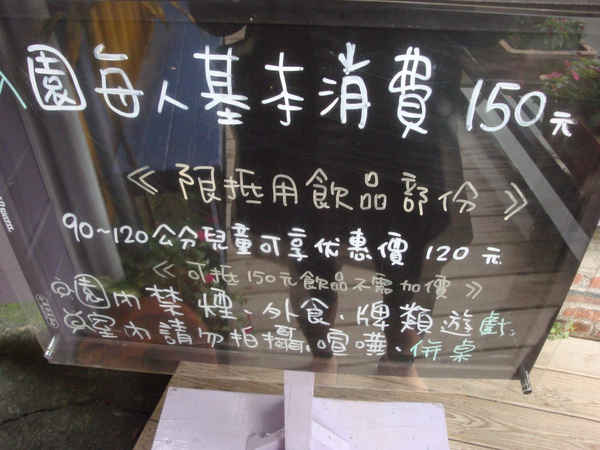 入園每人基本消費 150元
《 限抵用飲品部份 》
90~120公分兒童可享优惠價 120 元
《 可抵150元飲品不需加價 》
◎園內禁煙、外食、牌類遊戲.
◎室內請勿拍攝.喧嘩、併桌